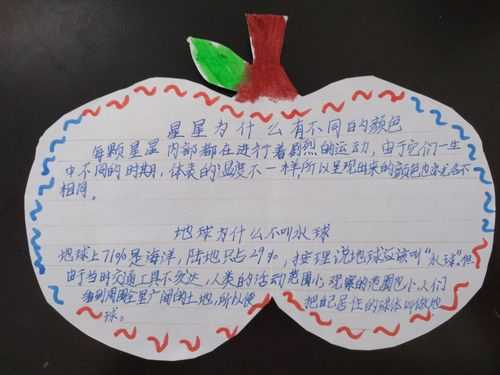 星星为什么有不同的颜色
每颗星星内部都在进行着剧烈的运动,由于它们一生
中不同的时期,体表的温度不一样所以呈现出来的颜色也各不
相同。
地球为什么不叫水球
地球上71%是海洋,陆地只占29%,按理说地球应该叫"水球"但
由于当时交通工具不发达,人类的活动范围小观察的范围也小人们
看到周围全是广阔的土地,所以便把自己居住的球体叫做地
球。